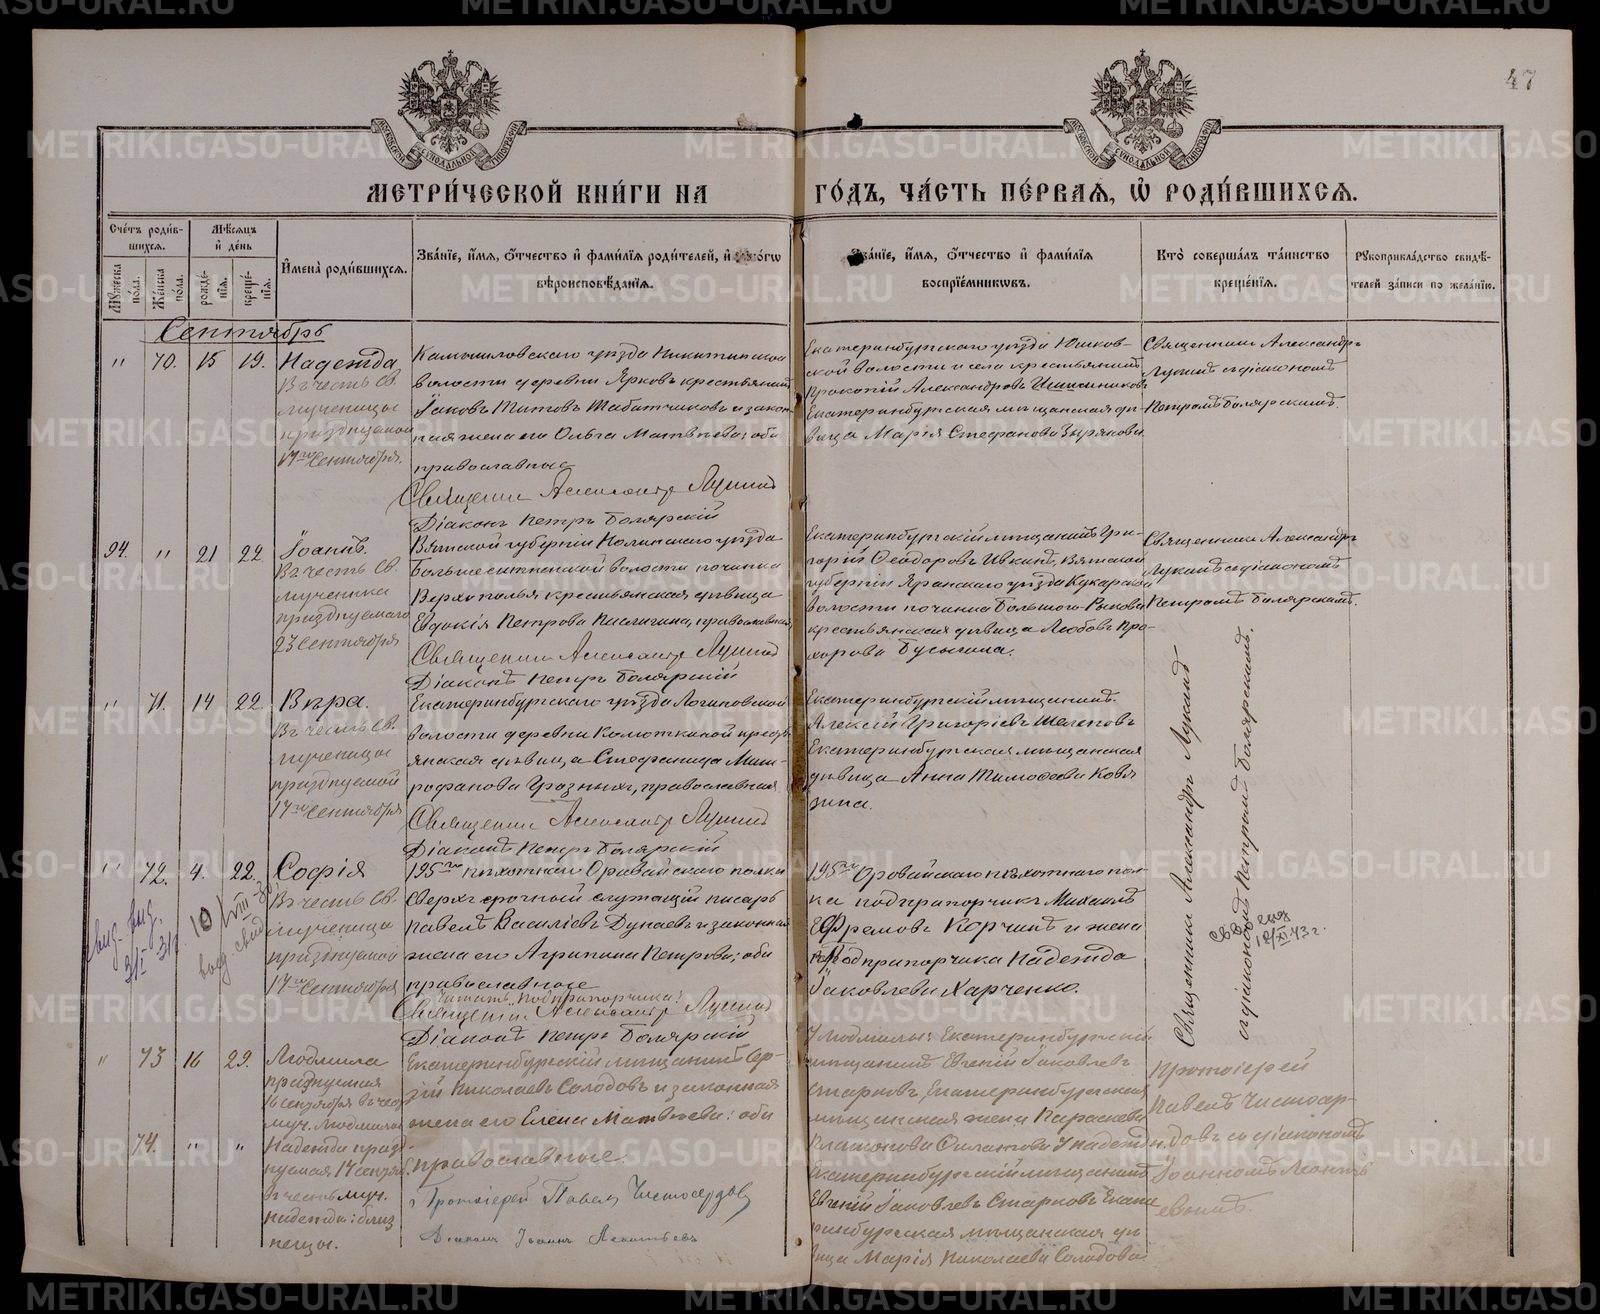 47
МЕТРИ́ЧЕСКОЙ КНИ́ГИ НА ГО́ДЪ, ЧА́СТЬ ПЕ́РВАЯ, Ѡ҆ РОДИ́ВШИХСЯ.
Сче́тъ роди́в-
шихся.
Мѣ́сяцъ
и҆ де́нь
Мꙋ́жеска
по́ла.
Же́нска
по́ла.
рожде́-
нїя.
креще́-
нїя.
И҆мена̀ роди́вшихся.
Зва́нїе, и҆́мя, ѻ҆́тчество и҆ фами́лїя роди́телей, и҆
вѣроисповѣ́данїя.
Зва́нїе, и҆́мя, ѻ҆́тчество и҆ фами́лїя
воспрїе́мниковъ.
Кто̀ соверша́лъ та́инство
креще́нїя.
Рꙋкоприкла́дство свидѣ́-
телей за́писи по жела́нїю.
Сентябрь
" 70. 15 19. Надежда
Въ честь Св.
мученицы
празднуемой
17го Сентября.
Камышловскаго уѣзда Никитинской
волости деревни Яркова крестьянинъ
Іаковъ Титовъ Табатчиковъ и закон-
ная жена его Ольга Матвѣева; оба
православные
Священник Александр Лукин
Діаконъ Петръ Болярскій
Екатеринбургскаго уѣзда Юшков-
ской волости и села крестьянинъ
Прокопій Александровъ
Екатеринбургская мѣщанская дѣ-
вица Марія Стефанова Зырянова.
Священникъ Александръ
съ діакономъ
Петромъ Болярскимъ.
24. " 21 22 Іоаннъ.
Въ честь Св.
мученика
празднуемаго
23 Сентября
Вятской губерніи Нолинскаго уѣзда
волости починка
Верхополья крестьянская дѣвица
Евдокія Петрова православная
Священник Александр
Діаконъ Петръ Болярскій
Екатеринбургскій мѣщанинъ Гри-
горій Ѳеодоровъ Ивкинъ, Вятской
губерніи Яранскаго уѣзда Кукарской
волости починка Большого-Рыкова
крестьянская дѣвица Любовь Про-
хорова Бусыгина.
Священникъ Александръ
съ діакономъ
Петромъ Болярскимъ.
" 71. 14 22 Вѣра.
Въ честь Св.
мученицы
празднуемой
17го Сентября
Екатеринбургскаго уѣзда Логиновской
волости деревни Колюткиной кресть-
янская дѣвица Стефанида Мит-
рофанова Грозныхъ, православная
Священник Александр
Діаконъ Петръ Болярскій
Екатеринбургскій мѣщанинъ
Алексій Григоріевъ Шелеповъ
Екатеринбургская мѣщанская
дѣвица Анна Тимоѳеева Ковя-
зина.
Священникъ Александръ
съ діакономъ Петромъ Болярскимъ.
" 72. 4. 22. Софія
Въ честь Св.
мученицы
празднуемой
17го Сентября
195го пѣхотнаго Оровайскаго полка
Сверхсрочный служащій писарь
Павелъ Василіевъ Дунаевъ и законная
жена его Агрипина Петрова; оба
православные
Читать "подпрапорчика"
Священник Александр
Діаконъ Петръ Болярскій
195го Оровайскаго пѣхотнаго пол-
ка подпрапорчикъ Михаилъ
Ефремовъ Корчинъ и жена
подпрапорчика Надежда
Іаковлева Харченко.
" 73 16 29. Людмила
празднуемая
16 сентября въ честь
муч. Людмилы
74. " " Надежда празд-
нуемая 17 сентяб.
въ честь муч.
Надежды: близ-
нецы.
Екатеринбургскій мѣщанинъ Сер-
гій Николаевъ Солодовъ и законная
жена его Елена Матвѣева: оба
православные.
Протоіерей Павелъ Чистосердовъ
Діаконъ Іоаннъ Леонтьевъ
У Людмилы: Екатеринбургскій
мѣщанинъ Евгеній Іаковлевъ
Старковъ, Екатеринбургская
мѣщанская жена Параскева
Филатова У Надежды
Екатеринбургскій мѣщанинъ
Евгеній Іаковлевъ Старковъ Екате-
ринбургская мѣщанская дѣ-
вица Марія Николаева Солодова
Протоіерей
Павелъ Чистосер-
довъ съ діакономъ
Іоанномъ Леонть-
евымъ.
METRIKI.GASO-URAL.RU